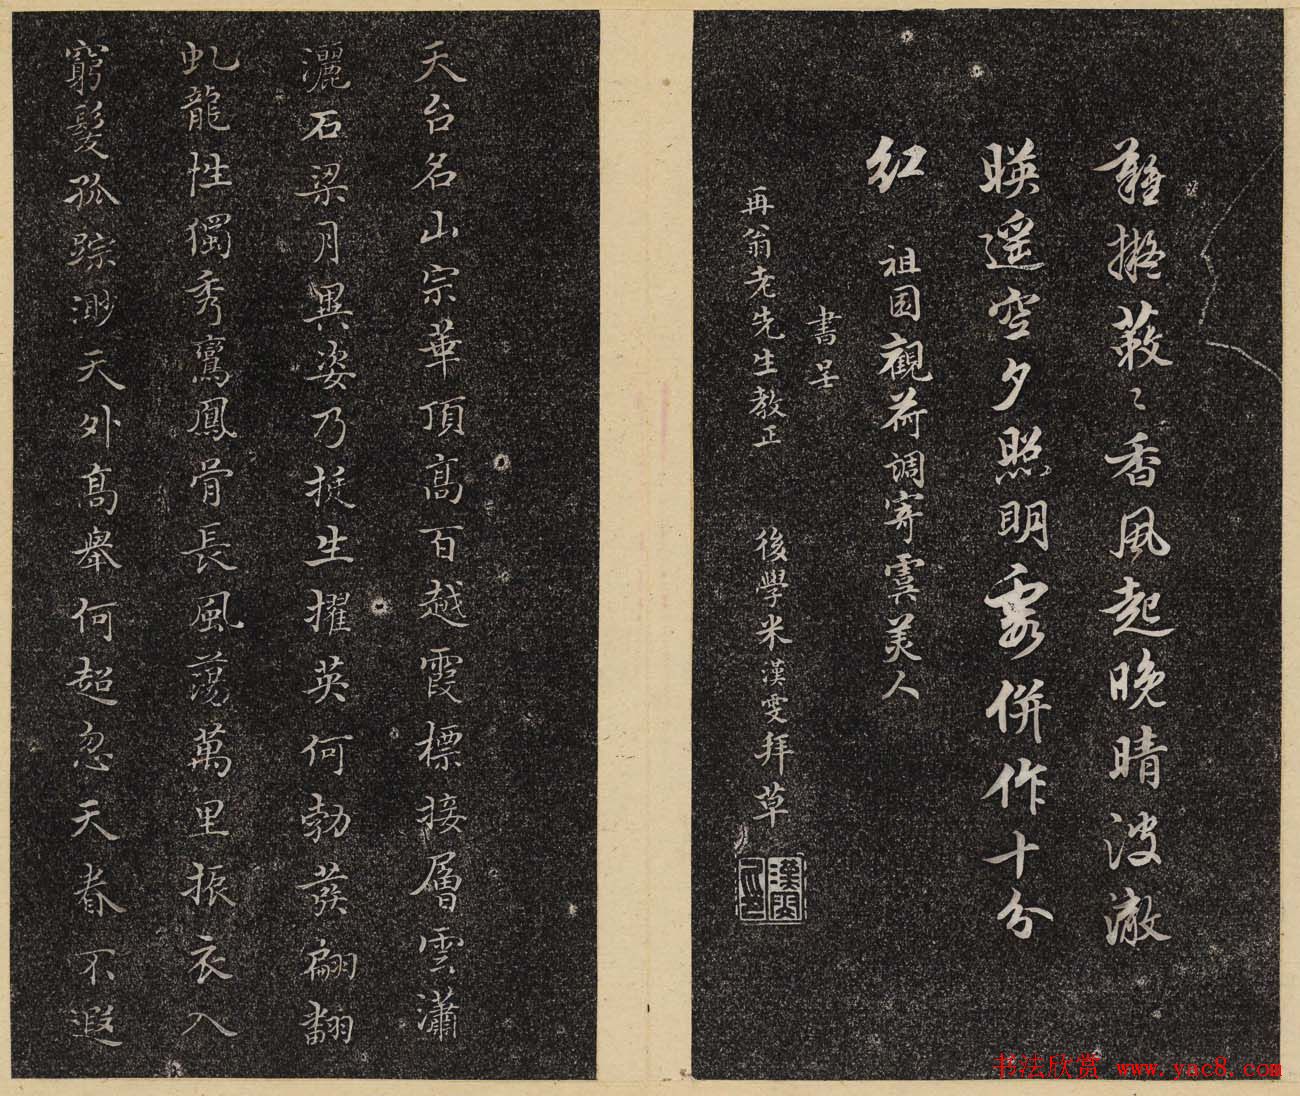 難擬蔌〻香風起晚晴波澈
暎遥空夕照明霞併作十分
紅
祖园觀荷調寄虞美人
書呈
再翁老先生教正
後學米漢雯拜草
漢雯
天台名山宗華頂高百越霞標接層雲瀟
灑石梁月異姿乃挺生擢英何勃發翩翻
虬龍性獨秀鸞鳳骨長風蕩萬里振衣入
窮髮孤踪渺天外高舉何超忽天眷不遐
书法欣赏 www.yac8.com